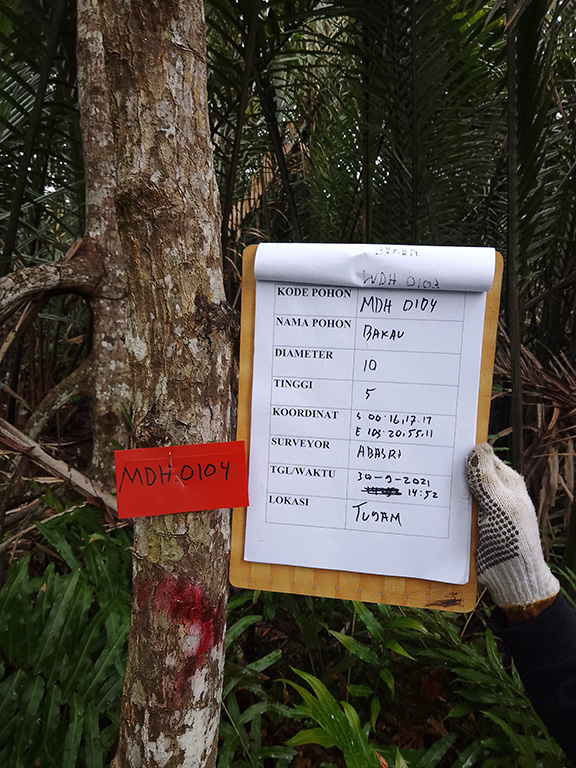 BAKAU
MDH 0103
KODE POHON MDH 0104
NAMA POHON BAKAU
DIAMETER 10
TINGGI 5
KOORDINAT S 00.16.17.17
E 103.20.55.11
SURVEYOR ADASRI
TGL/WAKTU 30-9-2021
14:52
LOKASI TUGAM
MDH.0104